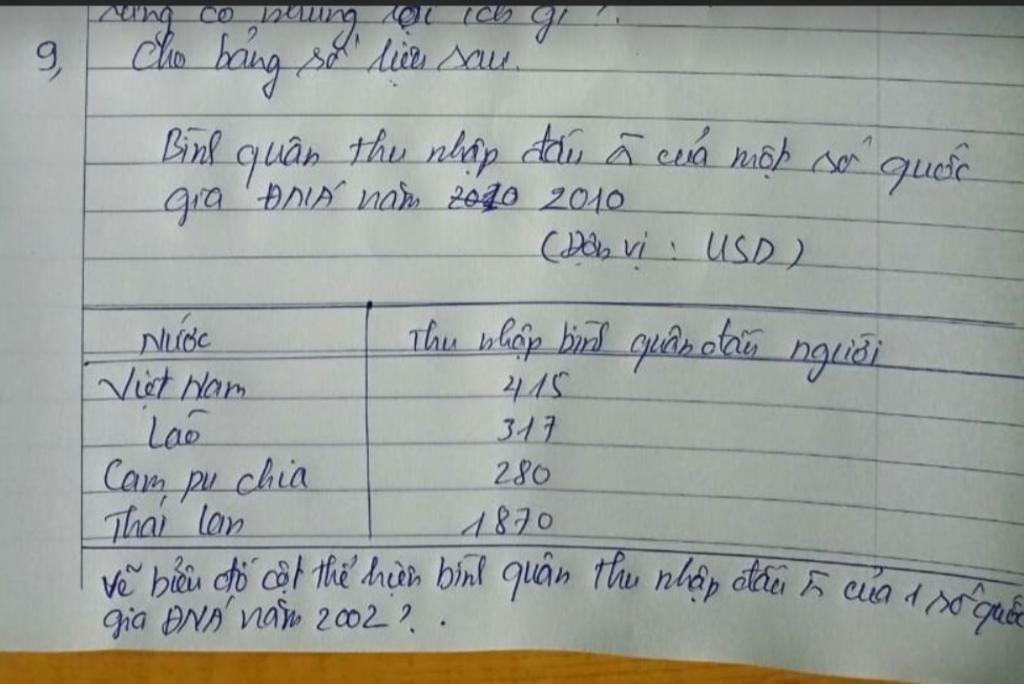 có những lợi ích gì?.
9, Cho bảng số liệu sau.
Bình quân thu nhập đầu ñ của một số quốc
gia ĐNÁ năm 2010
(Đơn vị : USD)
Nước Thu nhập bình quân đầu người
Việt Nam 415
Lào 317
Cam pu chia 280
Thái lan 1870
Vẽ biểu đồ cột thể hiện bình quân thu nhập đầu ñ của 1 số quốc
gia ĐNÁ năm 2002?.